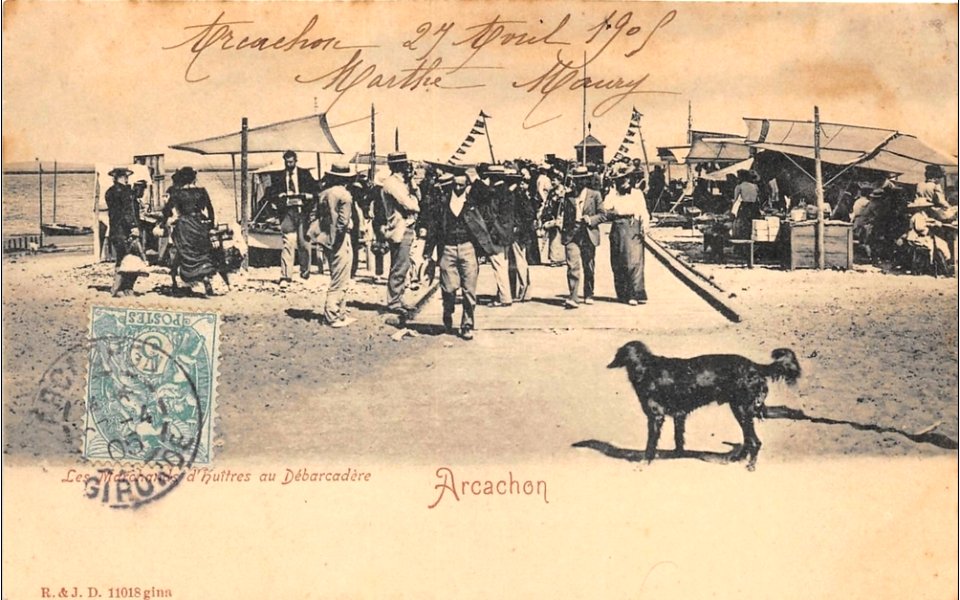 Arcachon 27 Avril 1905
Marthe Maury
POSTES
GIRONDE
Les Marchands d'huîtres au Débarcadère
Arcachon
R. & J. D. 11018 gina